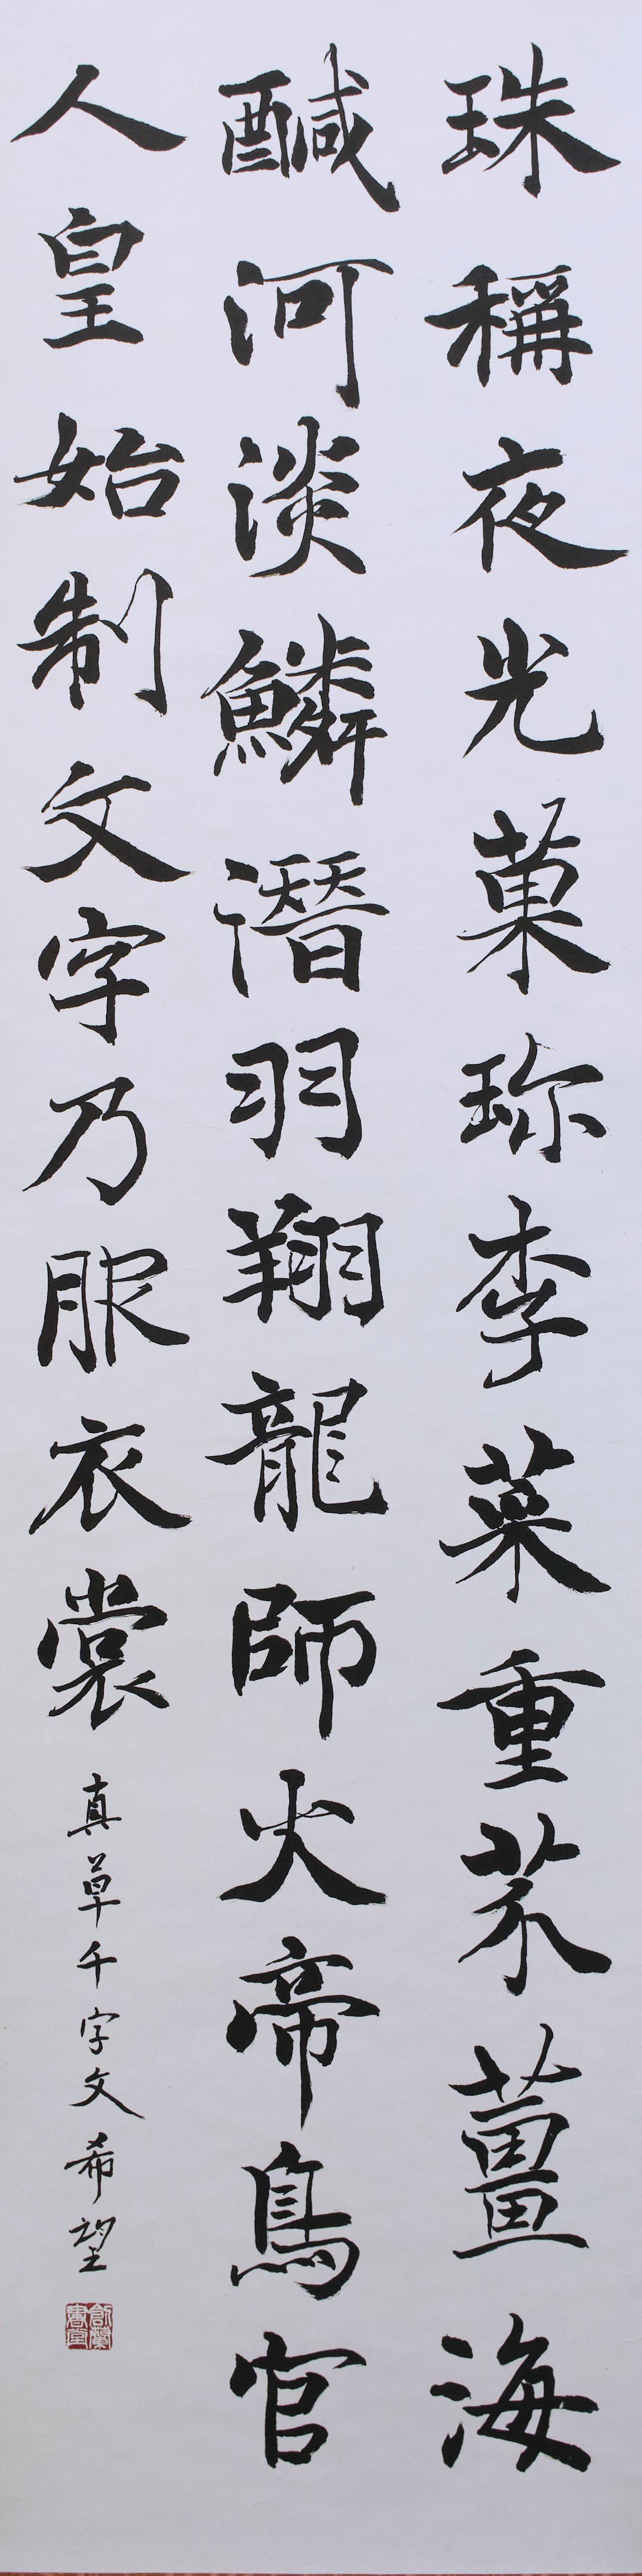 珠稱夜光菓珎李菜重芥薑海
醎河淡鱗潛羽翔龍師火帝鳥官
人皇始制文字乃服衣裳
真草千字文希望